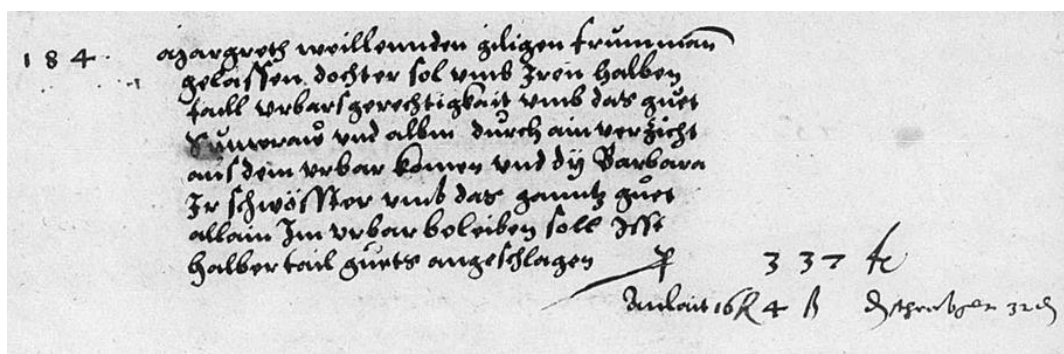 184 Margreth weillennden Giligen Krumman
gelassen dochter sol umb Iren halben
taill urbarsgerechtigkait umb das guet
und albm durch ain verzicht
aus dem urbar komen und dy Barbara
Ir schwösster umb das ganntz guet
allain Im urbar beleiben soll Isst
halber tail guets angeschlagen p 337 fl
Anlait 16 fl 4 ß schreibgelt 32 d